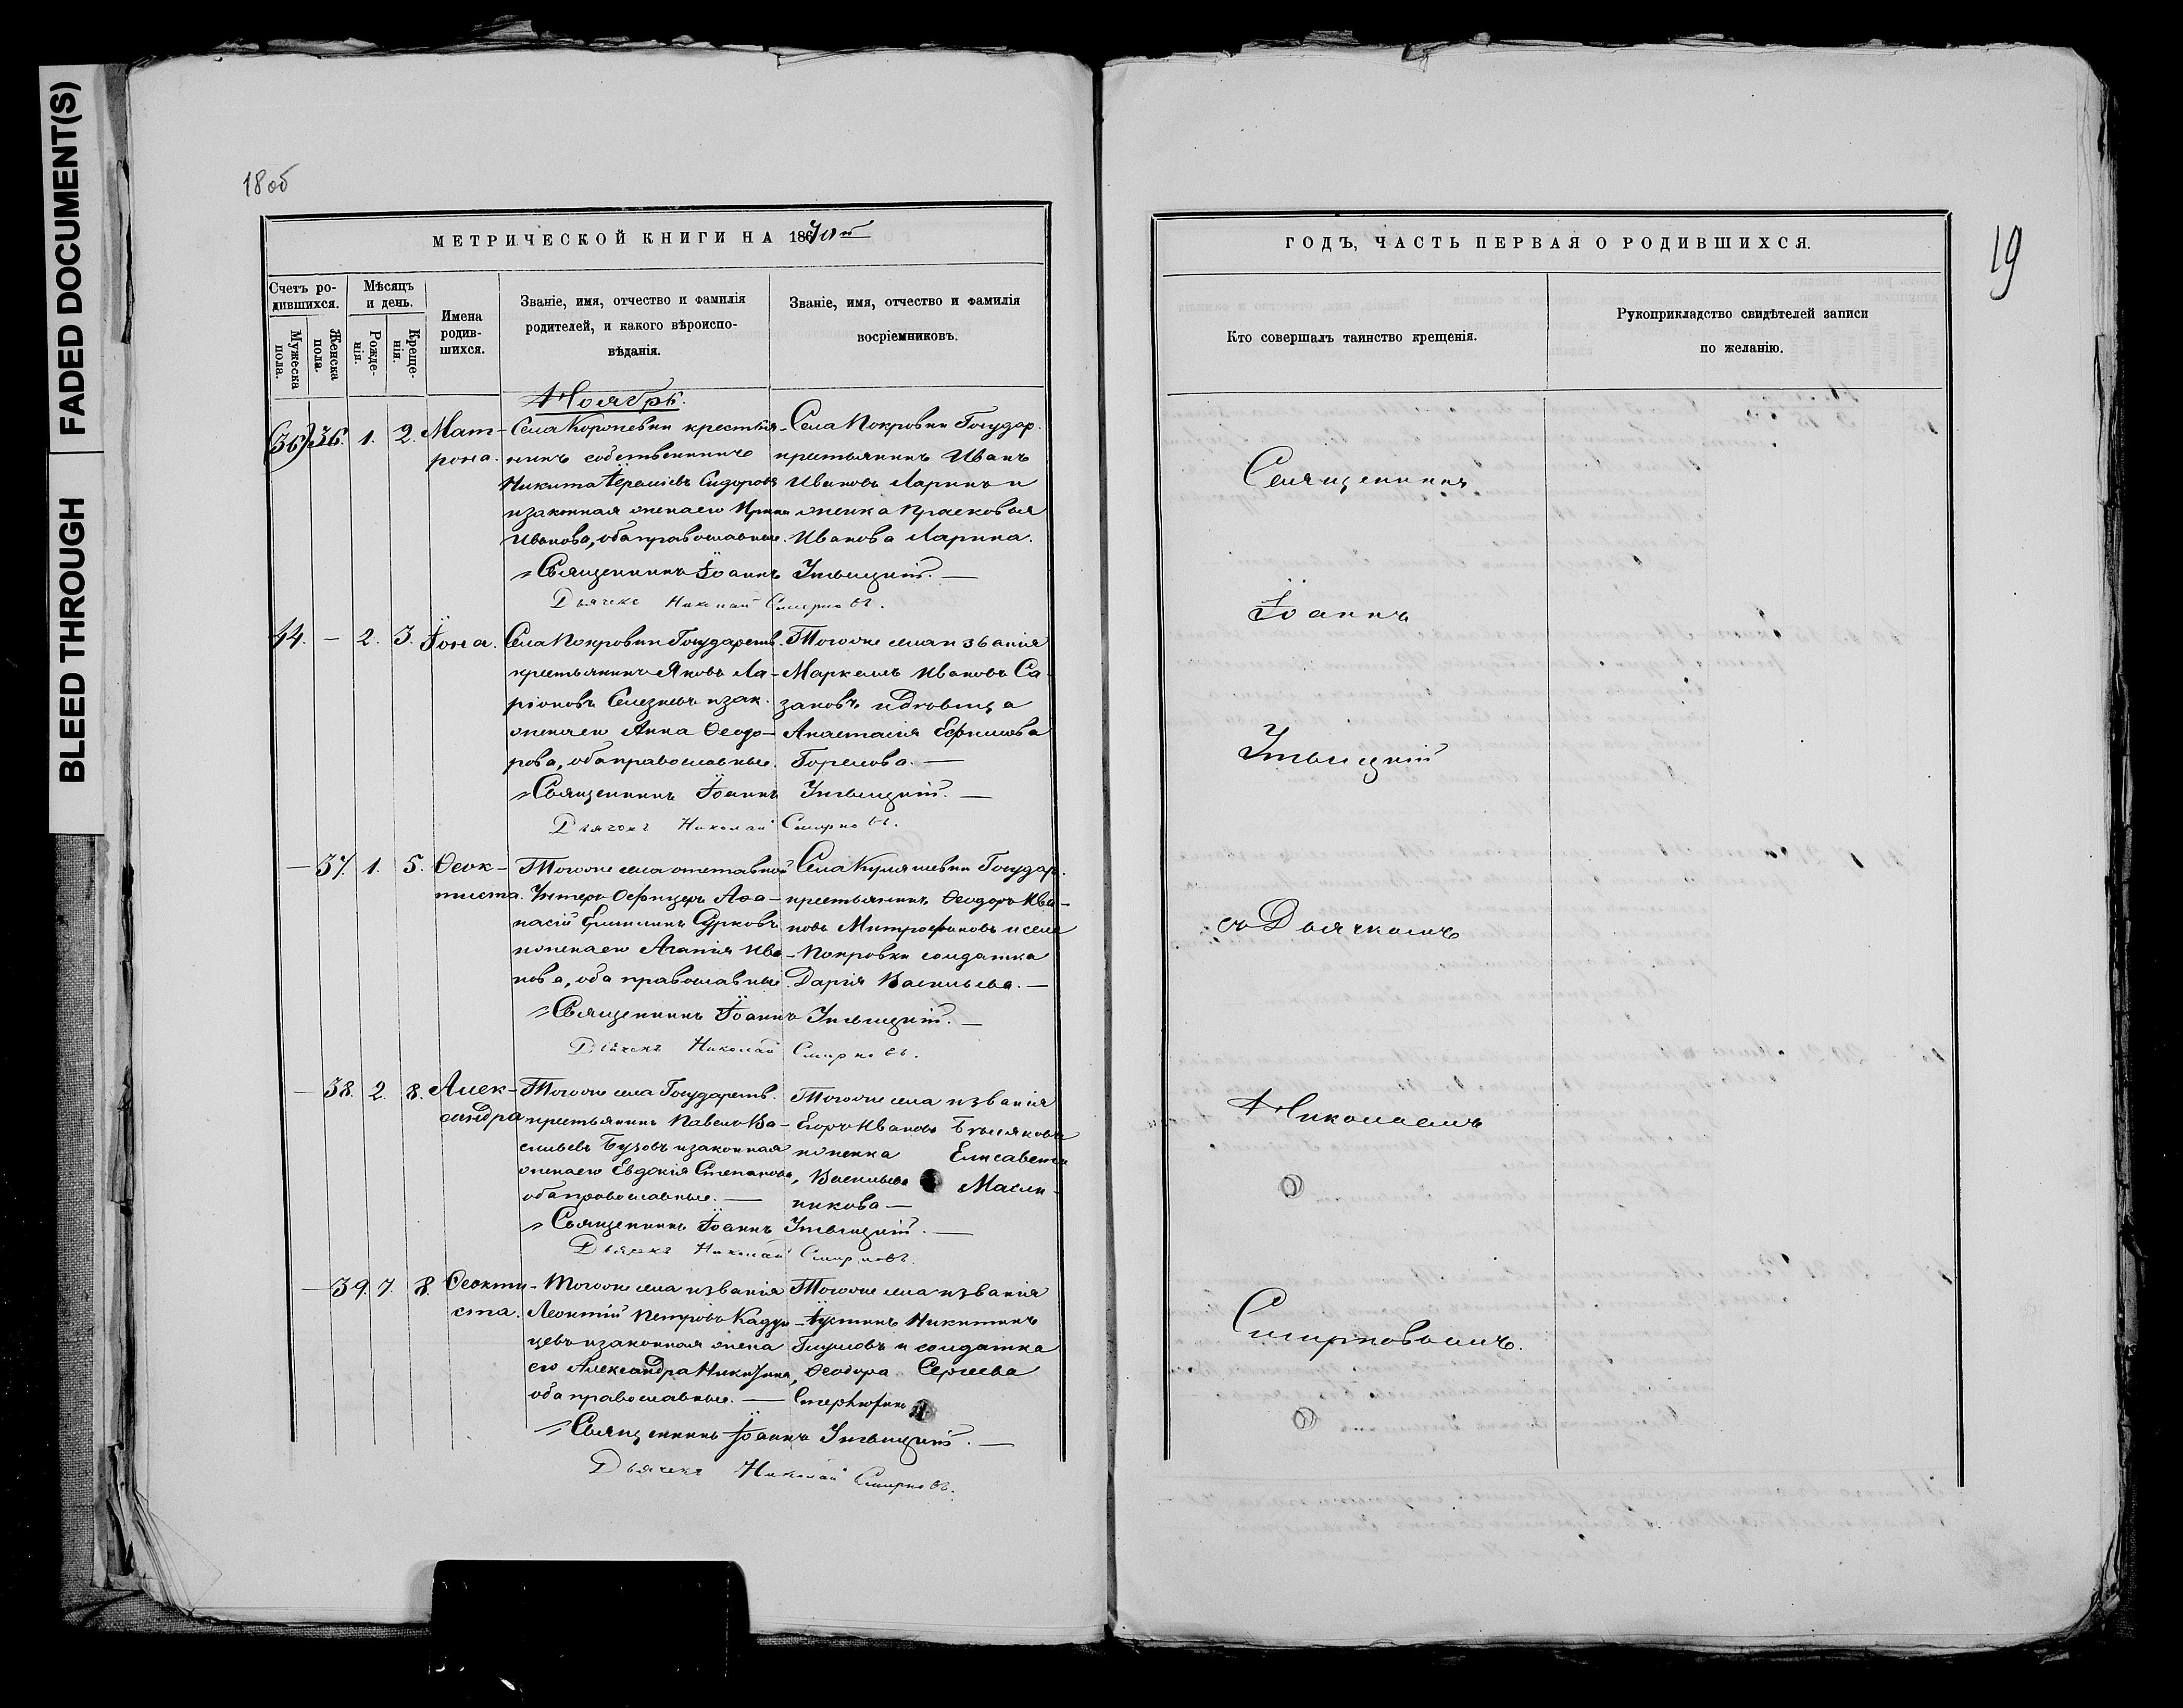 BLEED THROUGH
FADED DOCUMENT(S)
18об
МЕТРИЧЕСКОЙ КНИГИ НА 1870й
Счетъ ро-
дившихся.
Мужеска
пола.
Женска
пола.
Мѣсяцъ
и день.
Рожде-
нія.
Креще-
нія.
Имена
родив-
шихся.
Званіе, имя, отчество и фамилія
родителей, и какого вѣроиспо-
вѣданія.
Званіе, имя, отчество и фамилія
воспріемниковъ.
Ноябрь.
(36) 36. 1. 2. Мат-
рона.
Села Коропевки крестья-
нинъ собственникъ
Никита Сидоровъ
и законная жена его Ирина
Иванова, оба православные.
Села Покровки Государ.
крестьянинъ Иванъ
Ивановъ Ларинъ и
женка Прасковья
Иванова Ларина.
Священникъ Іоаннъ
Дьячекъ Николай Смирновъ.
44. — 2. 3. Іона.
Села Покровки Государств.
крестьянинъ Яковъ Ла-
ріоновъ Селезневъ и зак.
жена его Анна Ѳеодо-
рова, оба православные.
Тогоже села и званія
Маркеллъ Ивановъ Са-
зановъ и дѣвица
Анастасія Ефимова
Горелова. —
Священникъ Іоаннъ
Дьячекъ Николай Смирновъ.
— 37. 1. 5. Ѳеок-
тиста.
Тогоже села отставной
Унтеръ Офицеръ Аѳа-
насій Сурковъ
и жена его Агапія Ива-
нова, оба православные.
Села Государ.
крестьянинъ Ѳеодоръ Ива-
новъ Митрофановъ и села
Покровки солдатка
Дарія Васильева. —
Священникъ Іоаннъ
Дьячекъ Николай Смирновъ.
— 38. 2. 8. Алек-
сандра
Тогоже села Государств.
крестьянинъ Павелъ Ва-
сильевъ Бузовъ и законная
жена его Евдокія Степанова,
оба православные. —
Тогоже села и званія
Егоръ Ивановъ
и женка Елисавета
Васильева Маслен-
никова —
Священникъ Іоаннъ
Дьячекъ Николай Смирновъ.
— 39. 7. 8. Ѳеокти-
ста.
Тогоже села и званія
Леонтій Петровъ
и законная жена
его Александра Никитина,
оба православные. —
Тогоже села и званія
Іустинъ Никитинъ
Глуховъ и солдатка
Ѳеодора Сергеева
Священникъ Іоаннъ
Дьячекъ Николай Смирновъ.
ГОДЪ, ЧАСТЬ ПЕРВАЯ О РОДИВШИХСЯ.
19
Кто совершалъ таинство крещенія.
Рукоприкладство свидѣтелей записи
по желанію.
Священникъ
Іоаннъ
съ Дьячкомъ
Николаемъ
Смирновымъ.